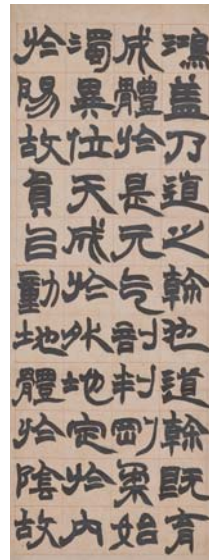 鴻盖乃道之幹也道幹既育
成體於是元气剖判剛柔始
濁異位天成於外地定於內
於陽故員㠯動地體於陰故